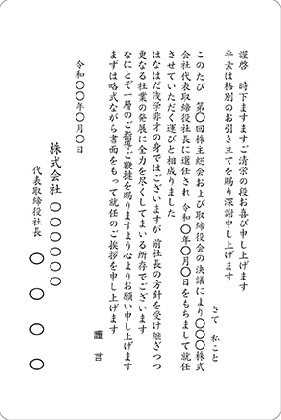 謹啓　時下ますますご清栄の段お喜び申し上げます
平素は格別のお引き立てを賜り深謝申し上げます
さて　私こと
このたび　第〇回株主総会および取締役会の決議により〇〇〇株式
会社代表取締役社長に選任され　令和〇年〇月〇日をもちまして就任
させていただく運びと相成りました
はなはだ浅学非才の身ではございますが　前社長の方針を受け継ぎつつ
更なる社業の発展に全力を尽くしてまいる所存でございます
なにとぞ一層のご指導ご鞭撻を賜りますよう心よりお願い申し上げます
まずは略式ながら書面をもって就任のご挨拶を申し上げます
謹言
令和〇〇年〇月〇日
株式会社〇〇〇〇〇〇
代表取締役社長　〇〇〇〇